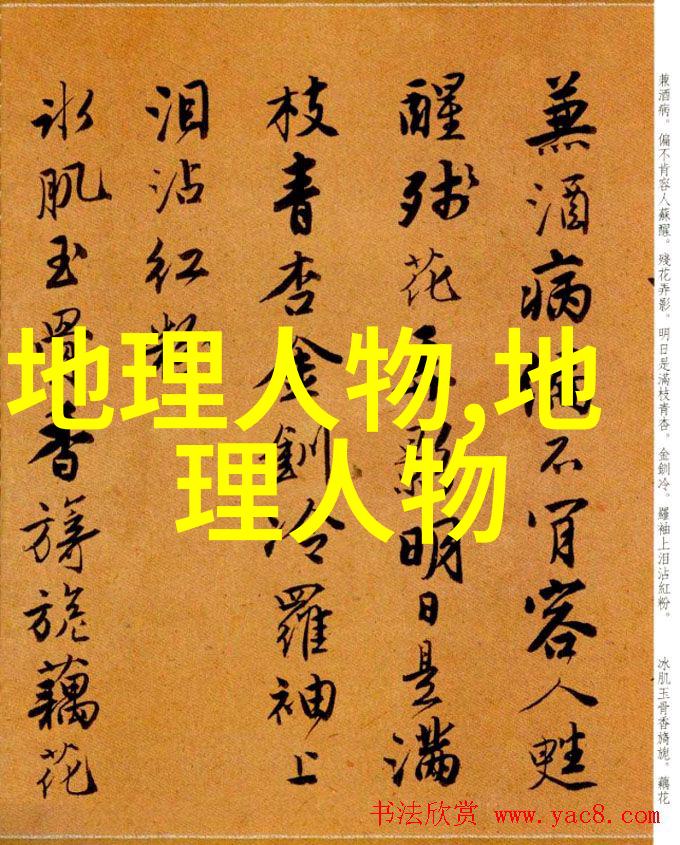 地理人物,地
理人物
兼酒病偏不肯容人甦
醒残花弄影明日是滿
枝青杏金釧冷羅袖上
泪沾红粉
冰肌玉骨香旖旎藕花
兼酒病。偏不肯容人蘇醒。殘花弄影。明日是滿枝青杏。金釧冷。羅袖上泪沾紅粉。
冰肌玉骨香旖旎。藕花
书法欣赏 www.yac8.com